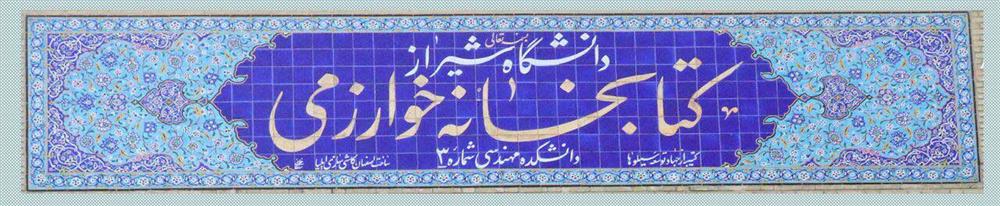 بسمه تعالی
دانشگاه شیراز
کتابخانه خوارزمی
دانشکده مهندسی شماره ۳